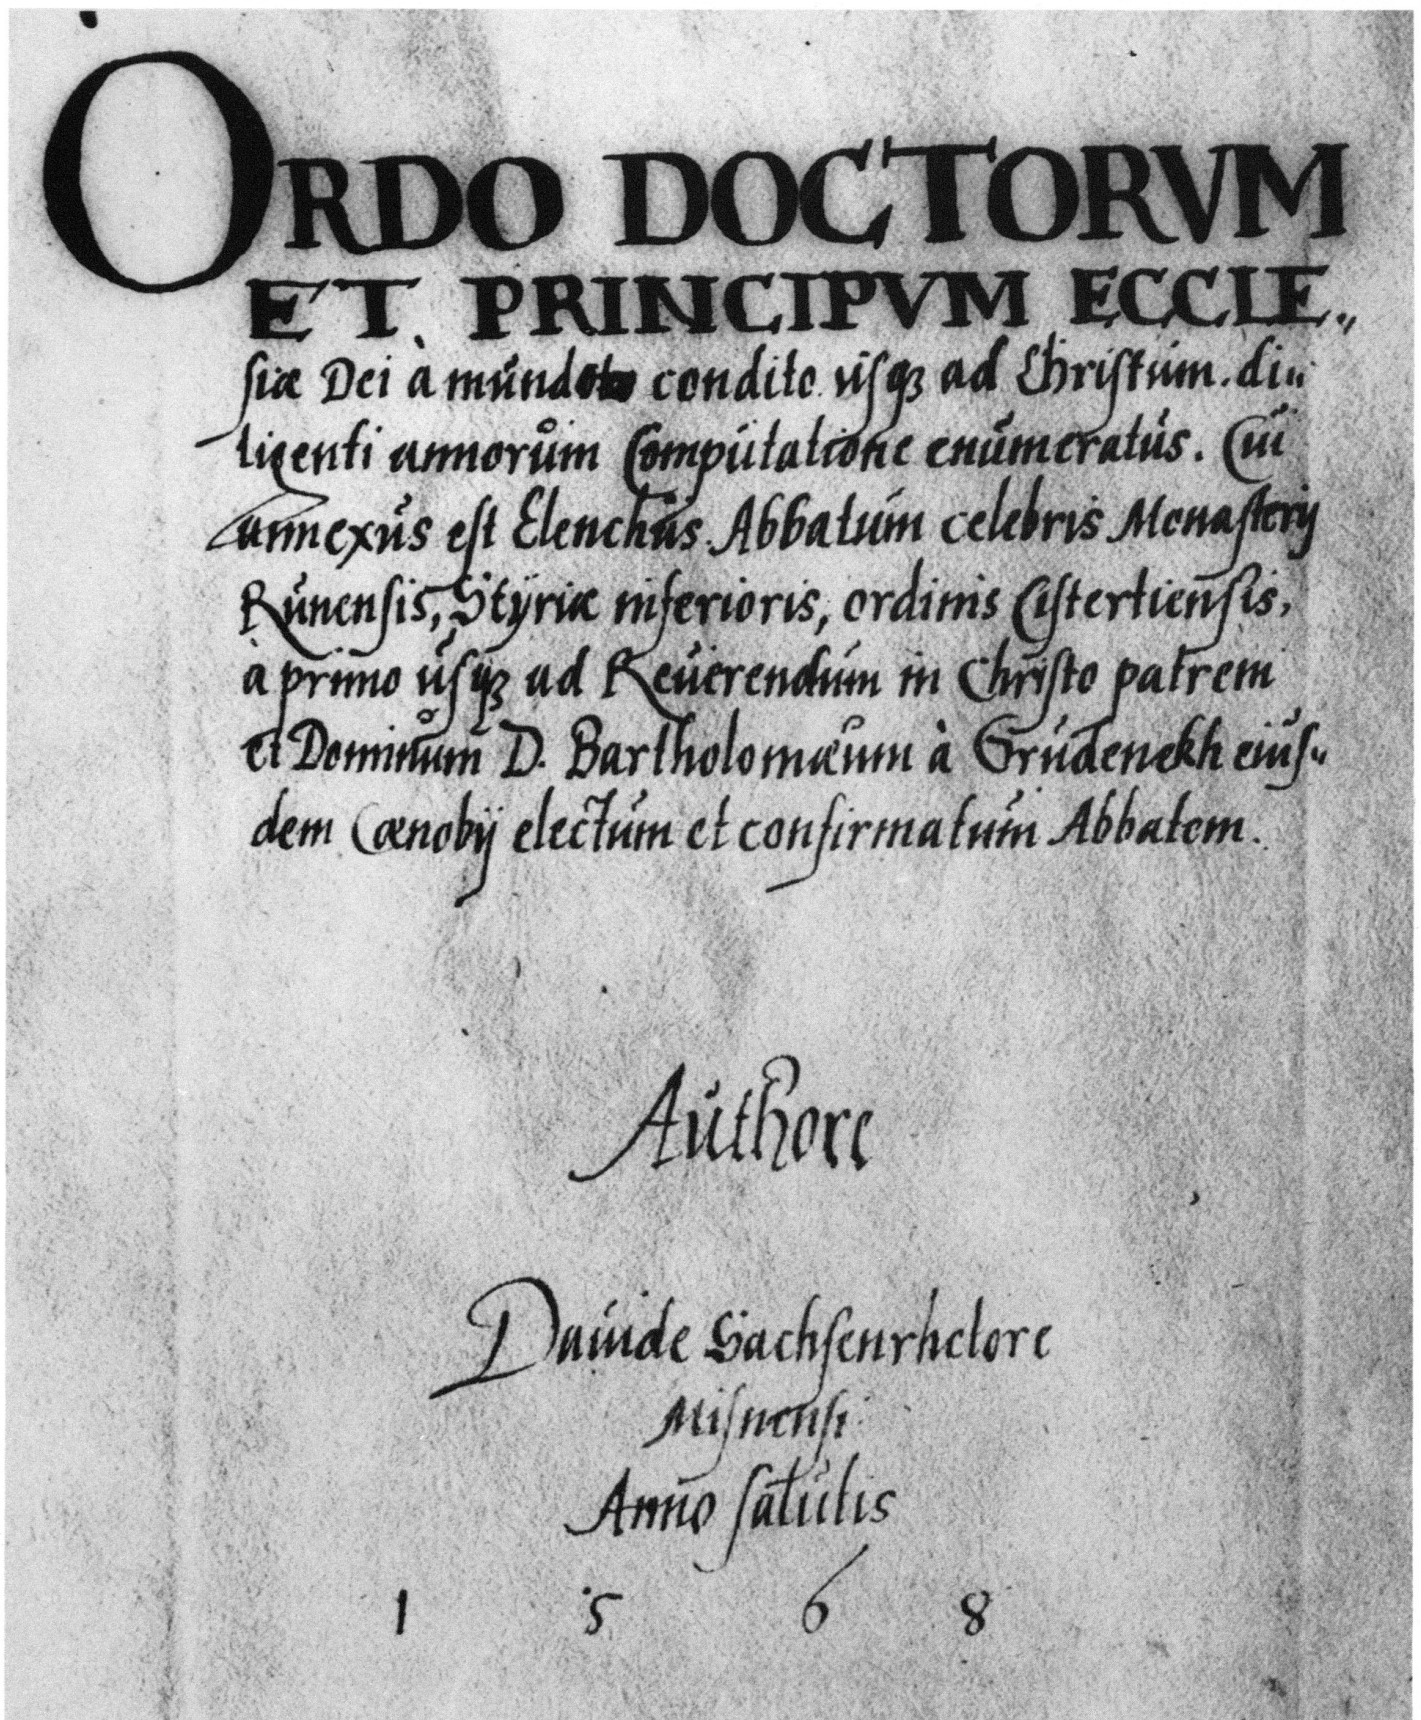 ORDO DOCTORVM
ET PRINCIPVM ECCLE„
siæ Dei à mundo condito usqꝫ ad Christum. di„
ligenti annorum Computatione enumeratus. Cui
annexus est Elenchus Abbatum celebris Monasterij
Runensis, Styriæ inferioris, ordinis Cistertiensis,
à primo usqꝫ ad Reuerendum in Christo patrem
et Dominum D. Bartholomæum à Grudenekh eius„
dem Cœnobij electum et confirmatum Abbatem.
Authore
Dauide Sachsenrhetore
Misnensi
Anno salutis
1 5 6 8